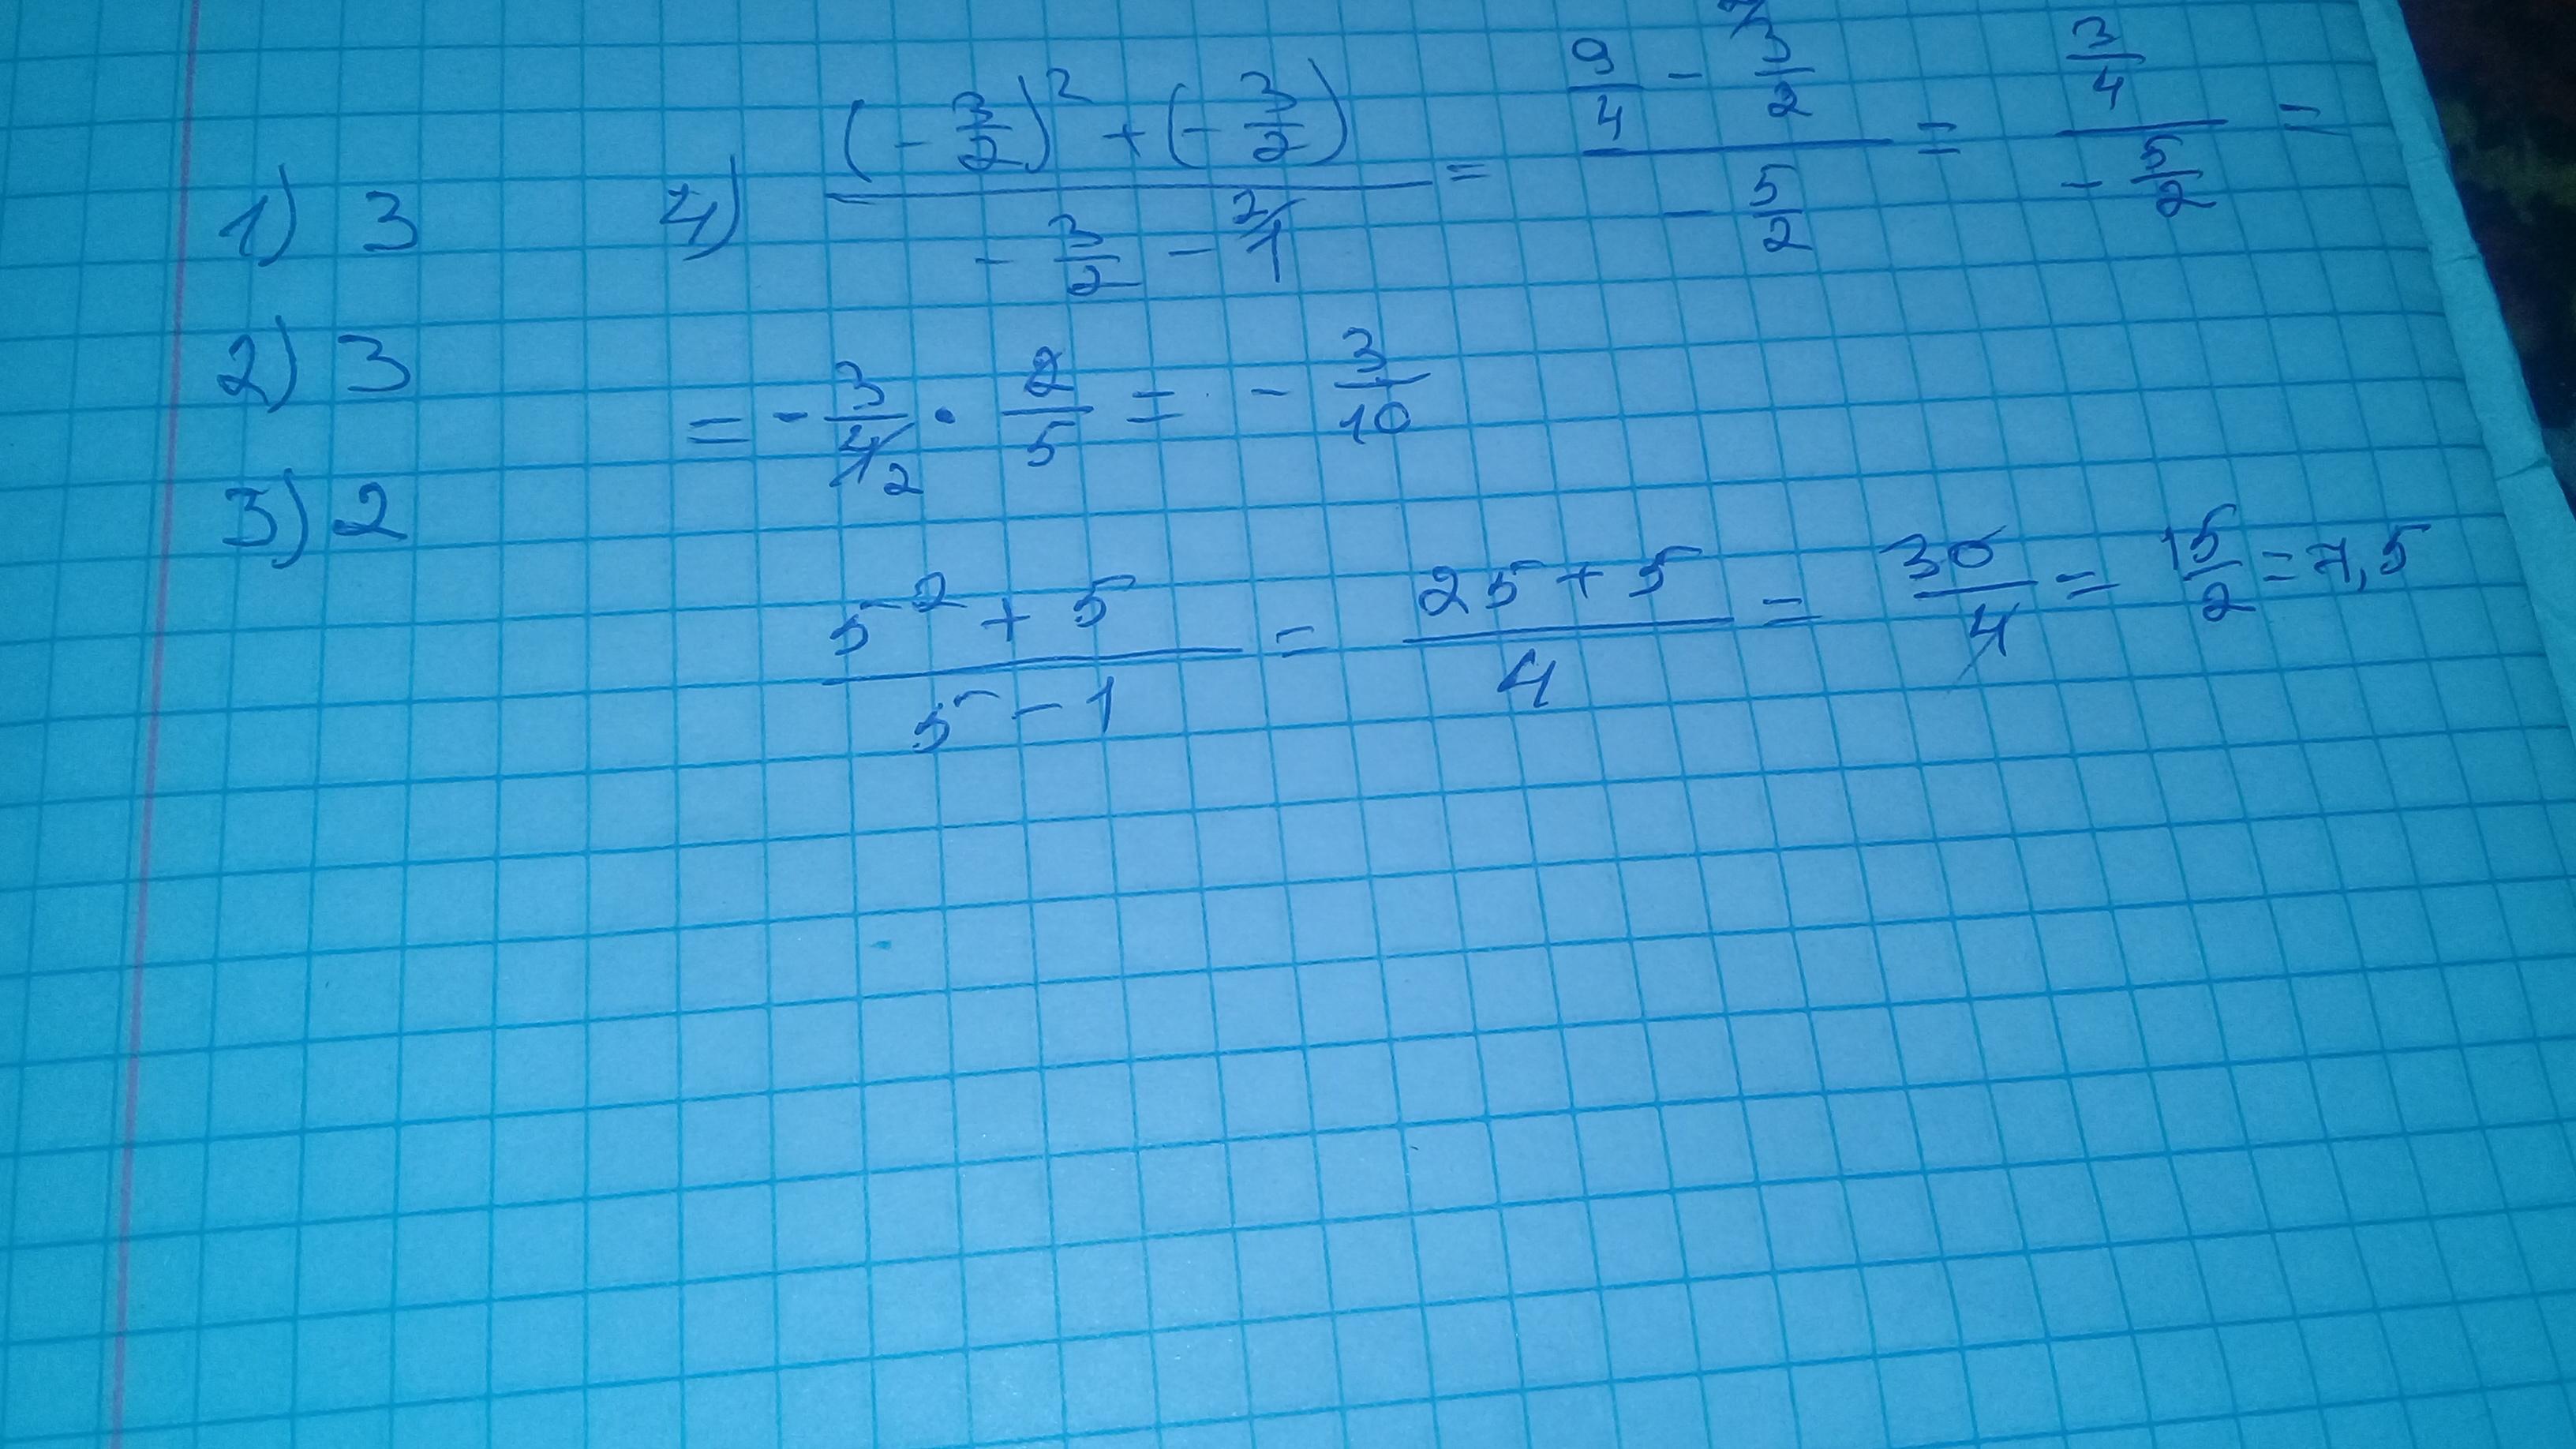 1) 3
2) 3
3) 2
4) \frac{(-\frac{3}{2})^2 + (-\frac{3}{2})}{-\frac{3}{2} - \frac{2}{1}} = \frac{\frac{9}{4} - \frac{3}{2}}{-\frac{5}{2}} = \frac{\frac{3}{4}}{-\frac{5}{2}} =
= -\frac{3}{4}_2 · \frac{2}{5} = -\frac{3}{10}
\frac{5^2 + 5}{5 - 1} = \frac{25 + 5}{4} = \frac{30}{4} = \frac{15}{2} = 7,5